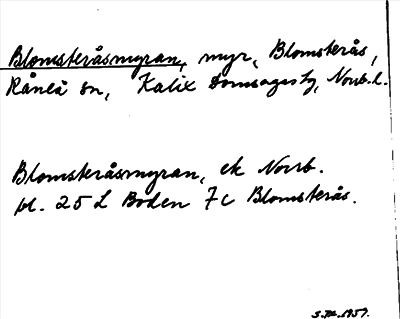 Blomsteråsmyran, myr, Blomsterås,
Råneå sn, Kalix Domsagas tg, Norrb. l.
Blomsteråsmyran, ek Norrb.
bl. 25 L Boden 7c Blomsterås.
1957.